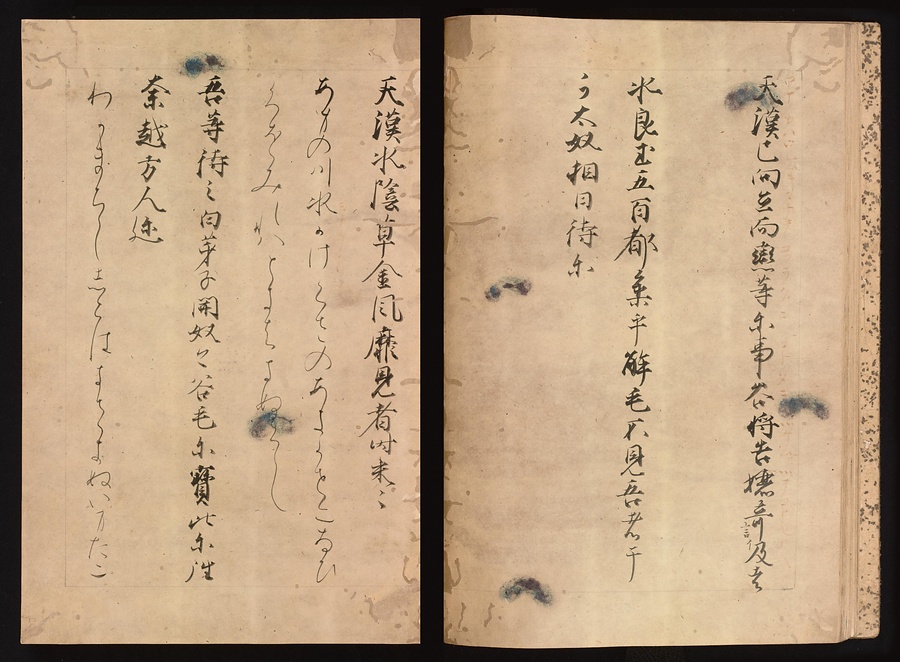 天漢已向立向戀等尓事谷将告孋奇及者
水良玉五百都集乎解毛不見吾者干
可太奴相日待尓
天漢水陰草金風靡見者时来之
あまの川水かけくさのあきかせになひ
くをみれハときはきぬらし
吾等待之白芽子開奴今谷毛尓寶比尓往
奈越方人迩
わかまちし志らはきさきぬいまたに